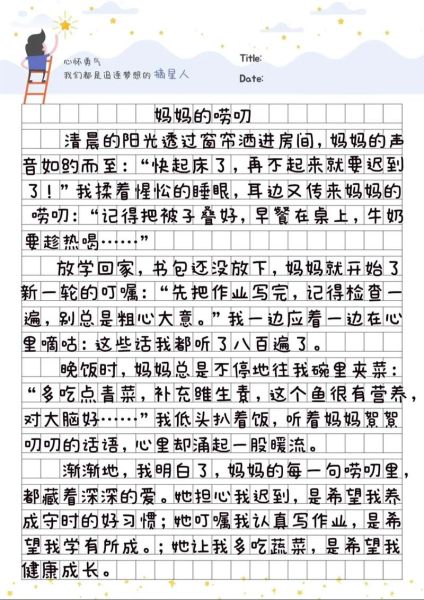 心怀勇气
我们都是追逐梦想的 摘星人
Title:
Date:
妈妈的唠叨
清晨的阳光透过窗帘洒进房间，妈妈的声
音如约而至：“快起床了，再不起来就要迟到
了！”我揉着惺忪的睡眼，耳边又传来妈妈的
唠叨：“记得把被子叠好，早餐在桌上，牛奶
要趁热喝……”
放学回家，书包还没放下，妈妈就开始了
新一轮的叮嘱：“先把作业写完，记得检查一
遍，别总是粗心大意。”我一边应着一边在心
里嘀咕：这些话我都听了八百遍了。
晚饭时，妈妈总是不停地往我碗里夹菜：
“多吃点青菜，补充维生素，这个鱼很有营养，
对大脑好……”我低头扒着饭，听着妈妈絮絮
叨叨的话语，心里却涌起一股暖流。
渐渐地，我明白了，妈妈的每一句唠叨里，
都藏着深深的爱。她担心我迟到，是希望我养
成守时的好习惯；她叮嘱我认真写作业，是希
望我学有所成。；她让我多吃蔬菜，是希望我
健康成长。